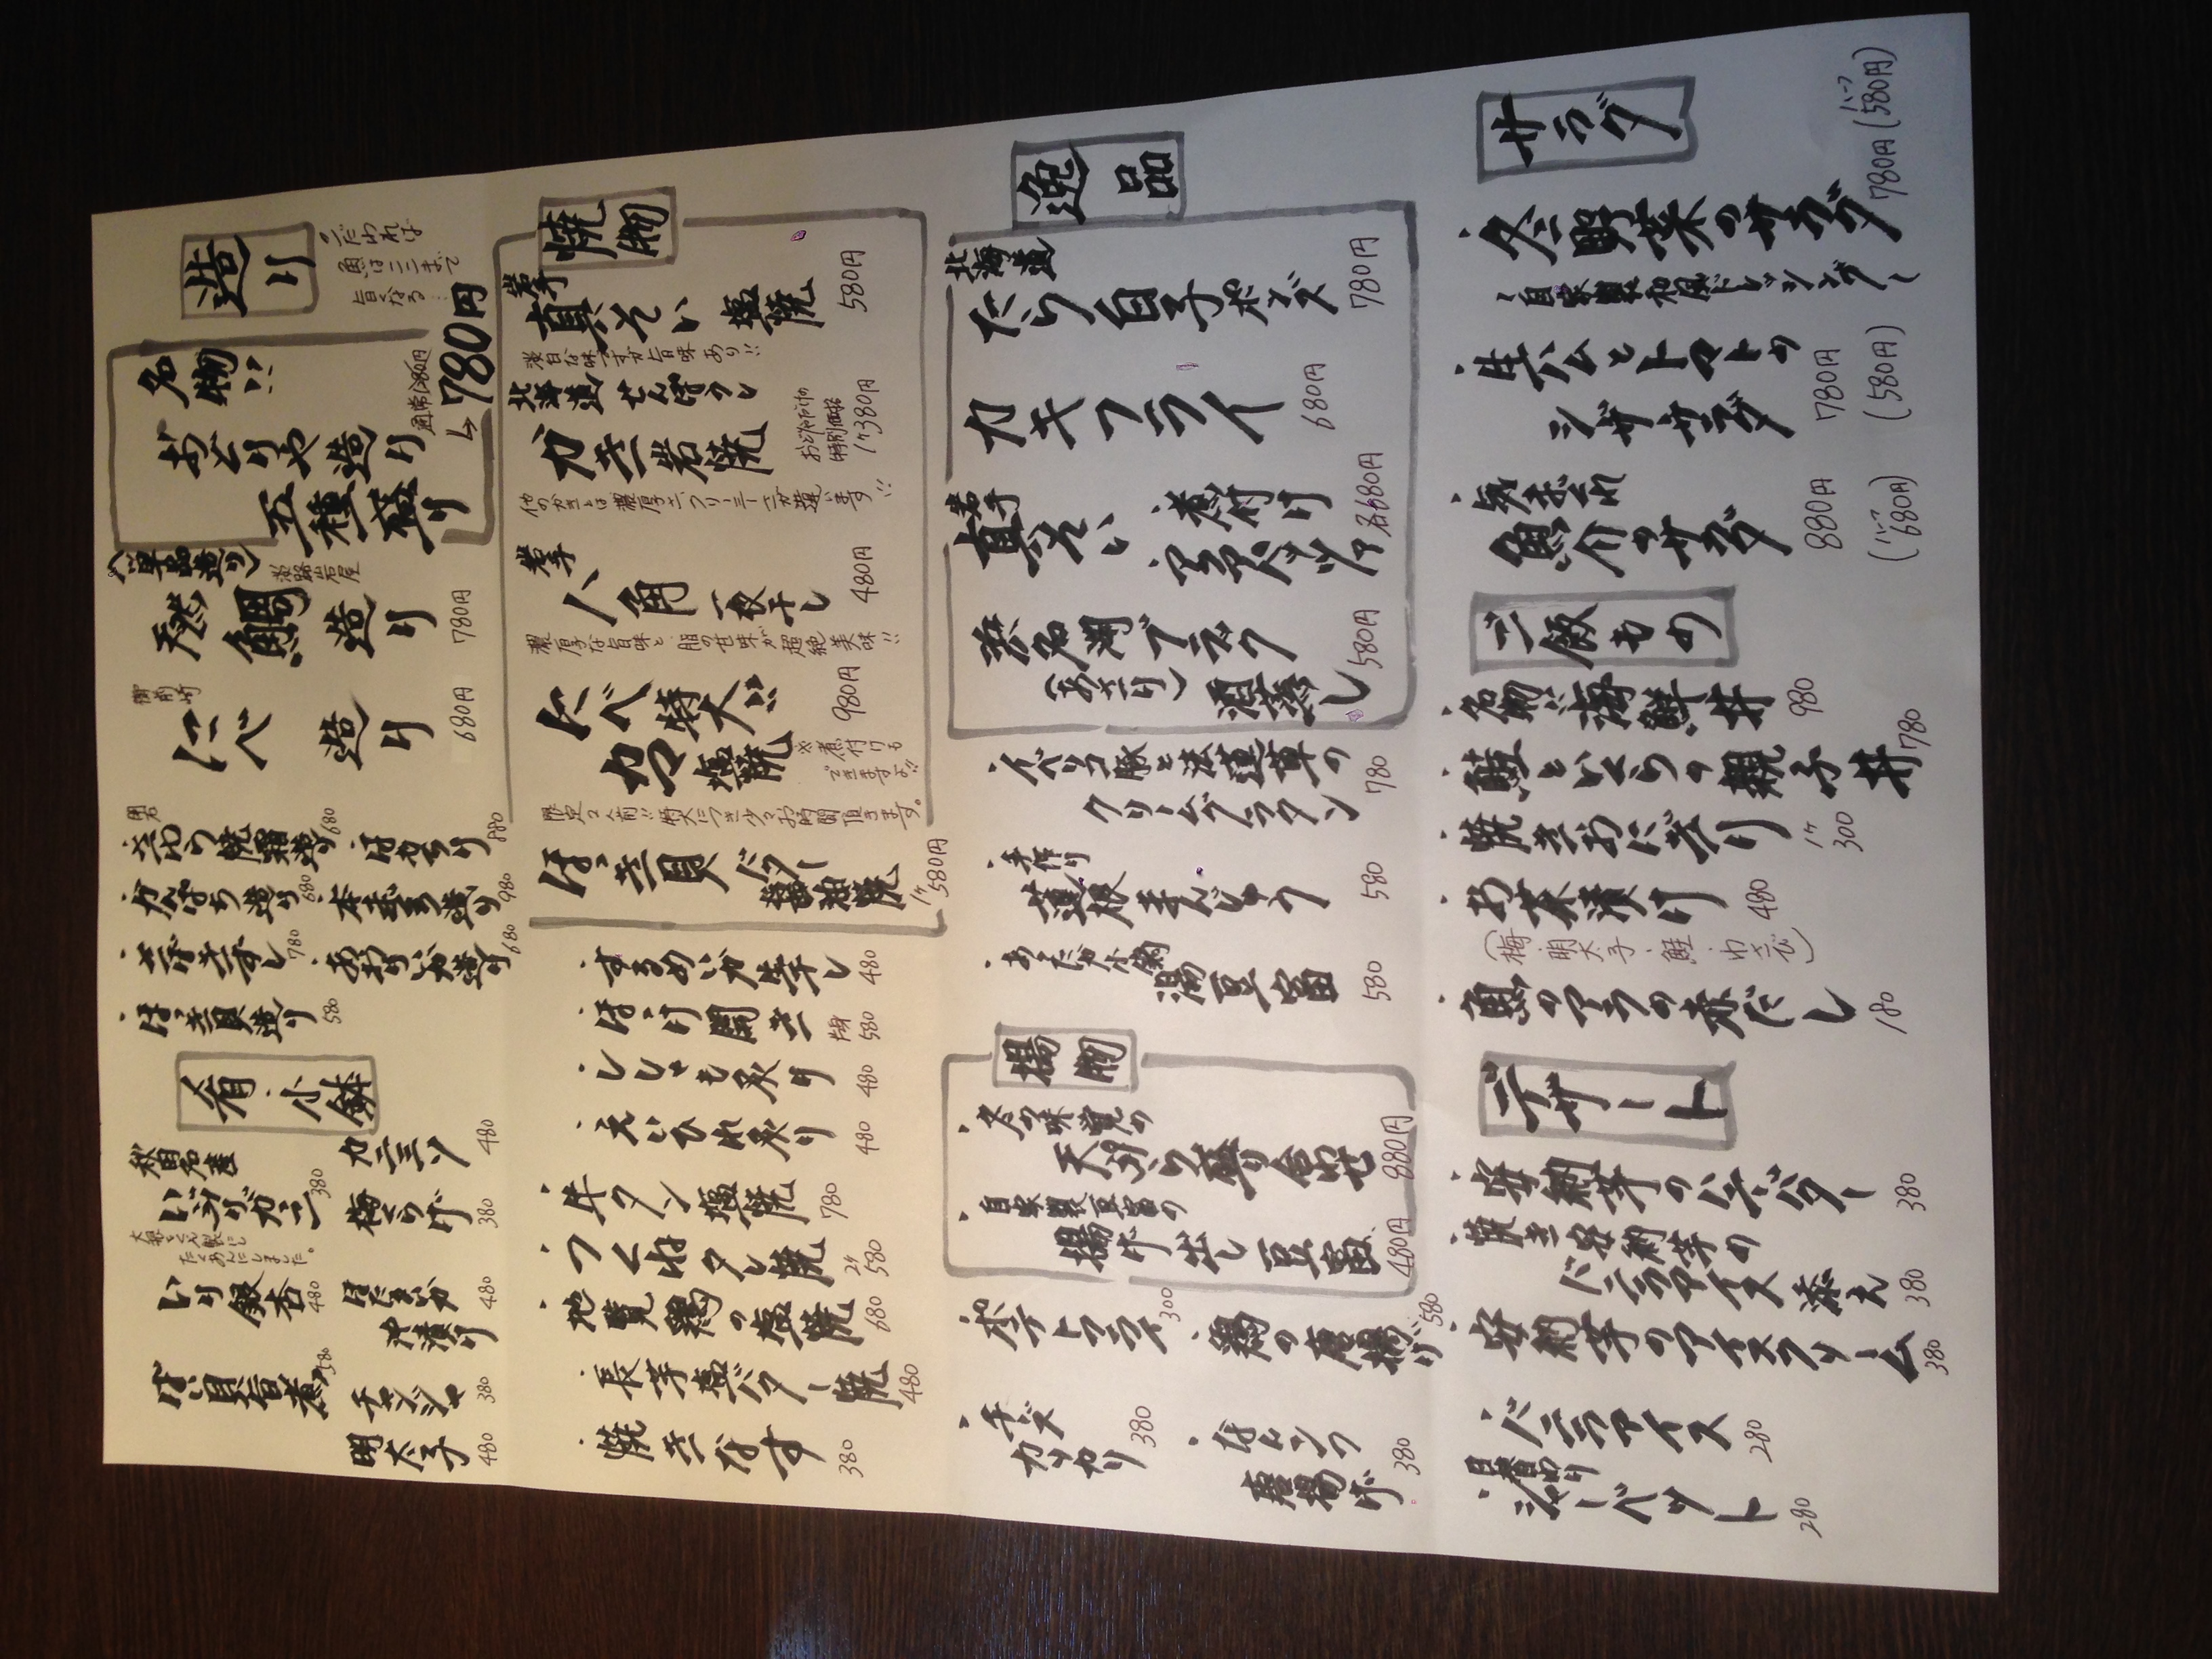 造り
こだわれば
魚はここまで
旨くなる
名物!!
おとりや造り
五種盛り
通常1280円
→780円
(単品造り)
淡路岩屋
天然鯛造り
780円
御前崎
にべ 造り
680円
さわら焼霜造り 680
かんぱち造り 680
きずし 780
ほっき貝造り 580
はまち造り 880
本まぐろ造り 980
あおりいか造り 680
肴・小鉢
秋田名産
いぶりガッコ 380
大根をくん製にし
たくあんにしました。
いり銀杏 480
ばい貝旨煮 380
カニミソ 480
梅くらげ 380
ほたるいか
沖漬け 480
チャンジャ 380
明太子 480
焼物
岩手
真そい 塩焼
580円
淡白な味ですが旨味あり!!
北海道 せんぽうし
カキ岩焼
おとりやだけの
特別価格
1ケ380円
他のカキとは濃厚さ、クリーミーさが違います!!
岩手
八角 一夜干し
480円
濃厚な旨味と脂の甘味が超絶美味!!
にべ特大!!
カマ塩焼
980円
※煮付けも
できますよ!!
限定2人前!!特大につき少々お時間頂きます。
ほっき貝バター
醤油焼
1ケ580円
・するめいか生干し 480
・ほっけ開き 片身 580
・ししゃも炙り 480
・えいひれ炙り 480
・牛タン塩焼 780
・つくねタレ焼 2ケ 580
・地鶏の塩焼 680
・長芋塩バター焼 480
・焼きなす 380
逸品
北海道
たら白子ポン酢
780円
カキフライ
680円
岩手
真そい
・煮付け
・アクアパッツァ
各680円
浜名湖アサリ
(あさり) 酒蒸し
580円
・イベリコ豚と法蓮草の
クリームグラタン
780
・手作り
蓮根まんじゅう
580
・あったか小鍋
湯豆富
580
揚物
・冬の味覚の
天ぷら盛り合わせ
880円
・自家製豆富の
揚げ出し豆富
480円
・ポテトフライ 300
・鶏の唐揚げ 580
・チーズ
カリカリ
380
・なんこつ
唐揚げ
380
サラダ
・冬野菜のサラダ
〜自家製和風ドレッシング〜
780円(ハーフ580円)
・生ハムとトマトの
シーザーサラダ
780円
(580円)
・気まぐれ
魚介のサラダ
880円
(ハーフ680円)
ご飯もの
・名物!!海鮮丼 980
・鮭といくらの親子丼 780
・焼きおにぎり 1ケ 300
・お茶漬け 480
(梅・明太子・鮭・わさび)
・魚のアラの赤だし 180
デザート
・安納芋のハニーバター 380
・焼き安納芋の
バニラアイス添え 380
・安納芋のアイスクリーム 380
・バニラアイス 280
・日替わり
シャーベット 280